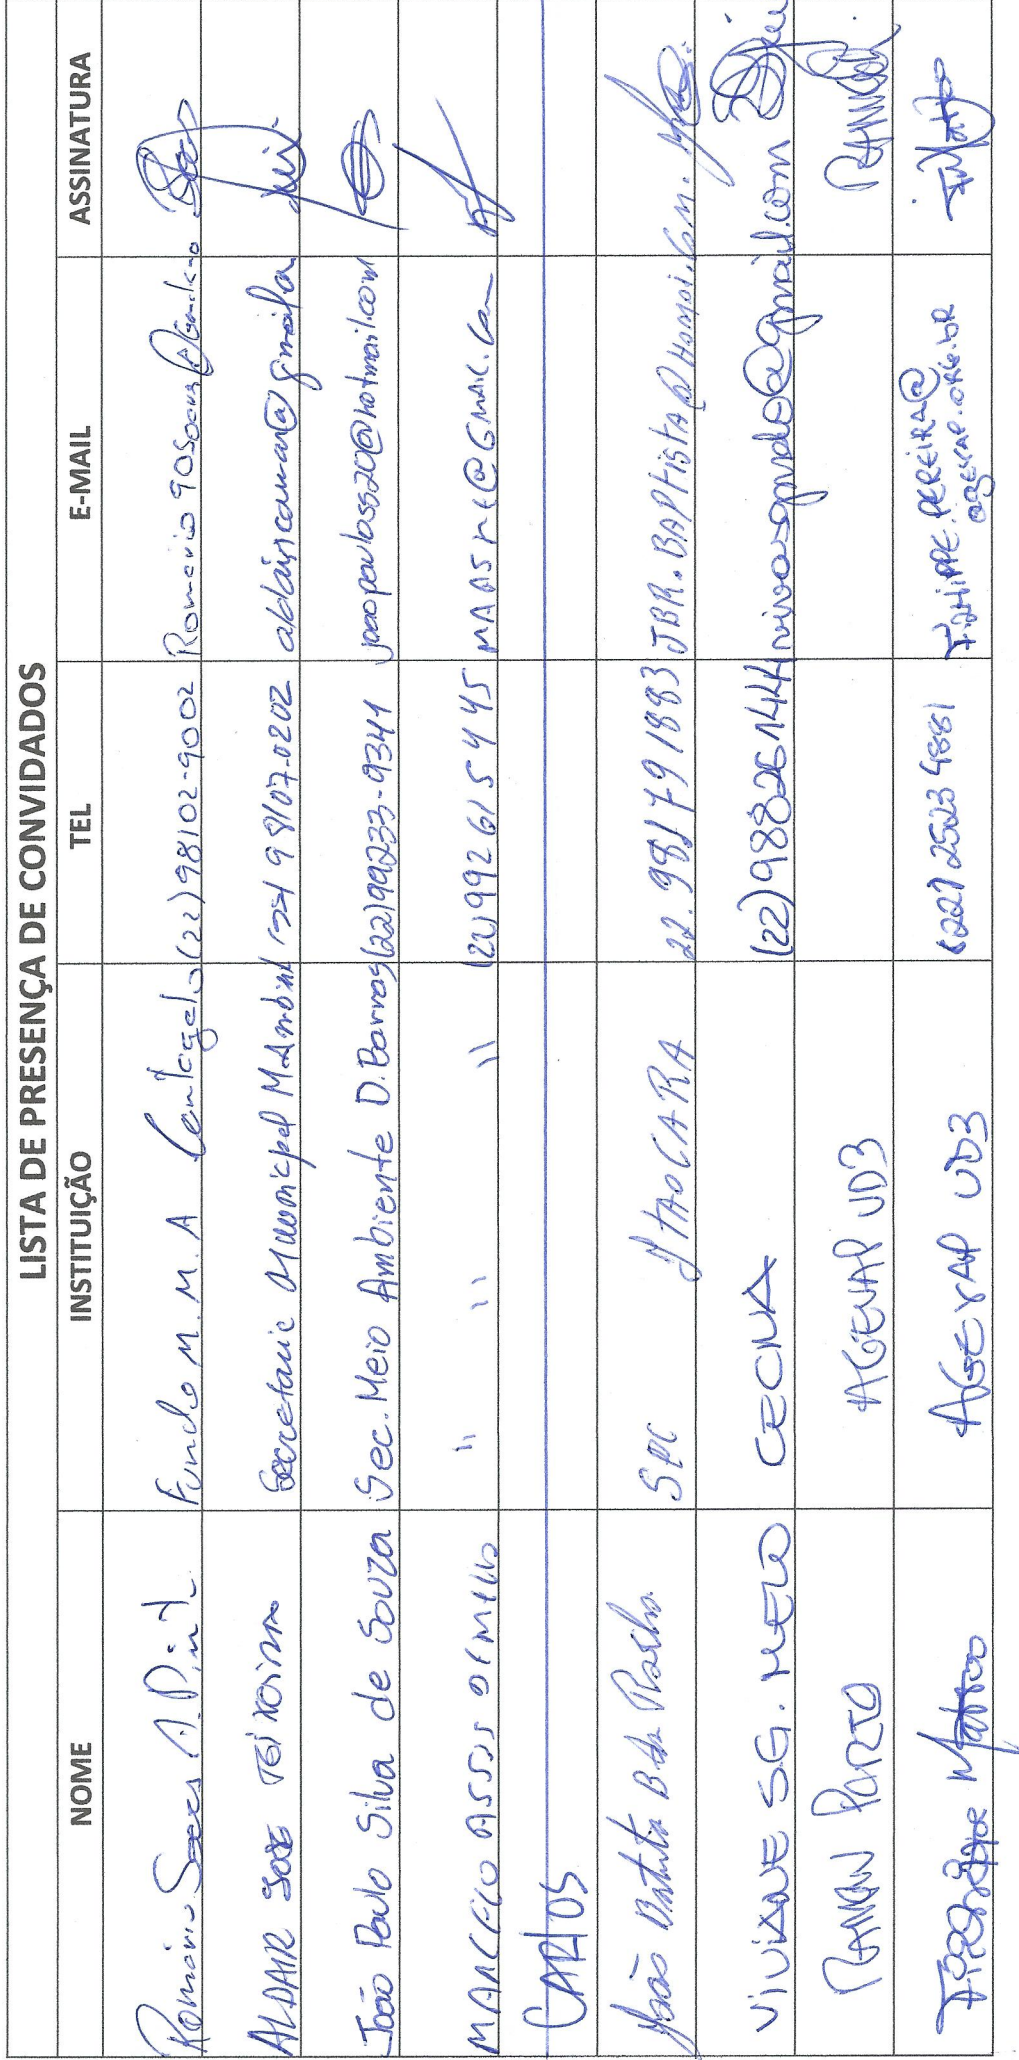 LISTA DE PRESENÇA DE CONVIDADOS
NOME INSTITUIÇÃO TEL E-MAIL ASSINATURA
Romário Soares A. Pinto Fundo M. M. A Cantagalo (22)98102-9002
ALDAIR JOSE TEIXEIRA Secretaria Municipal M. Ambient (22) 98107.0202 aldaircaman@gmail
João Paulo Silva de Souza Sec. Meio Ambiente D. Barras (22)99233-9341 joaopauloss20@hotmail.com
MARCELO ASSIS DE MELLO " " " (21)992615445 MAASME@GMAIL.Com
CARLOS
João Batista B da Rocha ITAOCARA 22.981791883 JBR.BAPTISTA@Hotmail.Com.
VIVIANE S.G. MELO CECNA (22)988261444 vivasgmelo@gmail.com
RAMON PORTO AGEVAP UD3 RAMON
AGEVAP UD3 (22) 2523 4881 F.PHIPPE.PEREIRA@
agevap.org.br